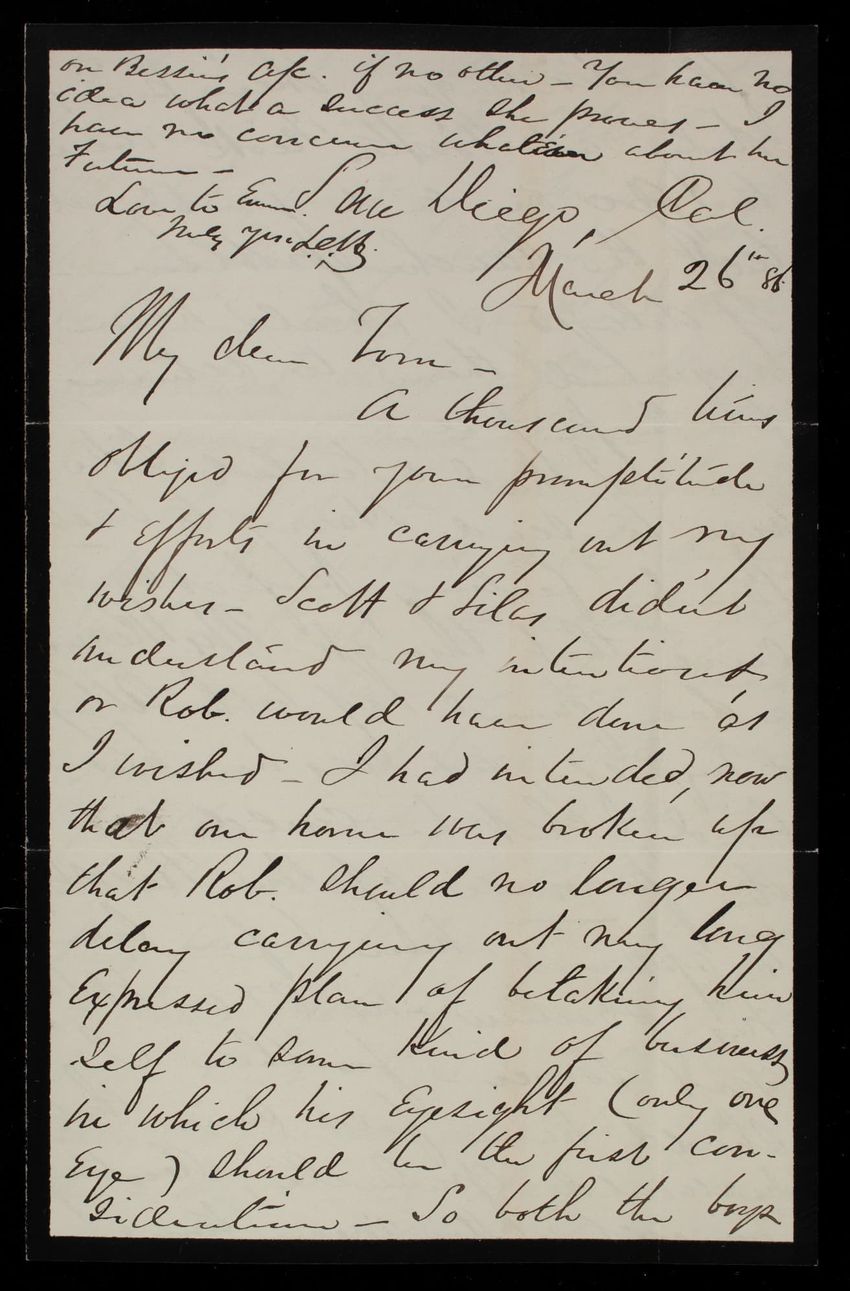 on Bessie's a/c. if no other – You have no
idea what a success she proves – I
have no concern whatever about her
Future –
Love to Emma.
Truly yrs
San Diego, Cal.
March 26th 86
My dear Tom –
A thousand times
obliged for your promptitude
& efforts in carrying out my
wishes – Scott & Silas didn't
understand my intentions
or Rob. would have done as
I wished – I had intended, now
that our home was broken up
that Rob. should no longer
delay carrying out my long
Expressed plan of betaking him
self to some kind of business
in which his Eyesight (only one
Eye) should be the first con-
sideration – So both the boys